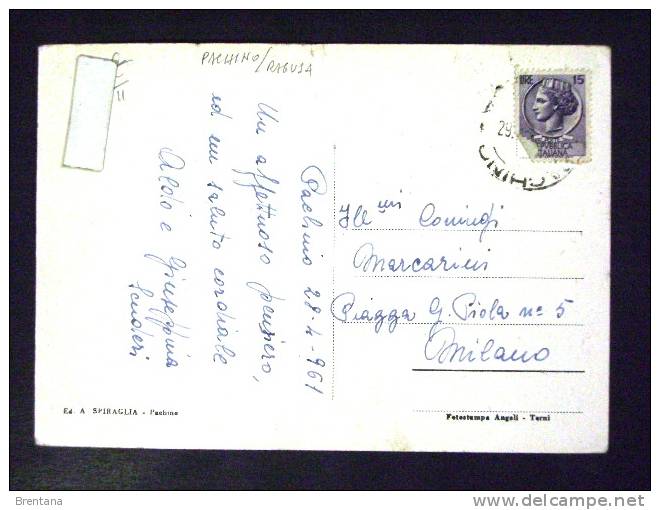 PACHINO/RAGUSA
II
LIRE 15
REPUBBLICA
ITALIANA
29.
PACHINO
Pachino 28-4-961
Un affettuoso pensiero,
ed un saluto cordiale
Aldo e Giuseppina
Scuderi
Ill mi Coniugi
Marcarini
Piazza G. Piola nº 5
Milano
Ed. A. SPIRAGLIA - Pachino
Fotostampa Angeli - Terni
Brentana
delcampe.net